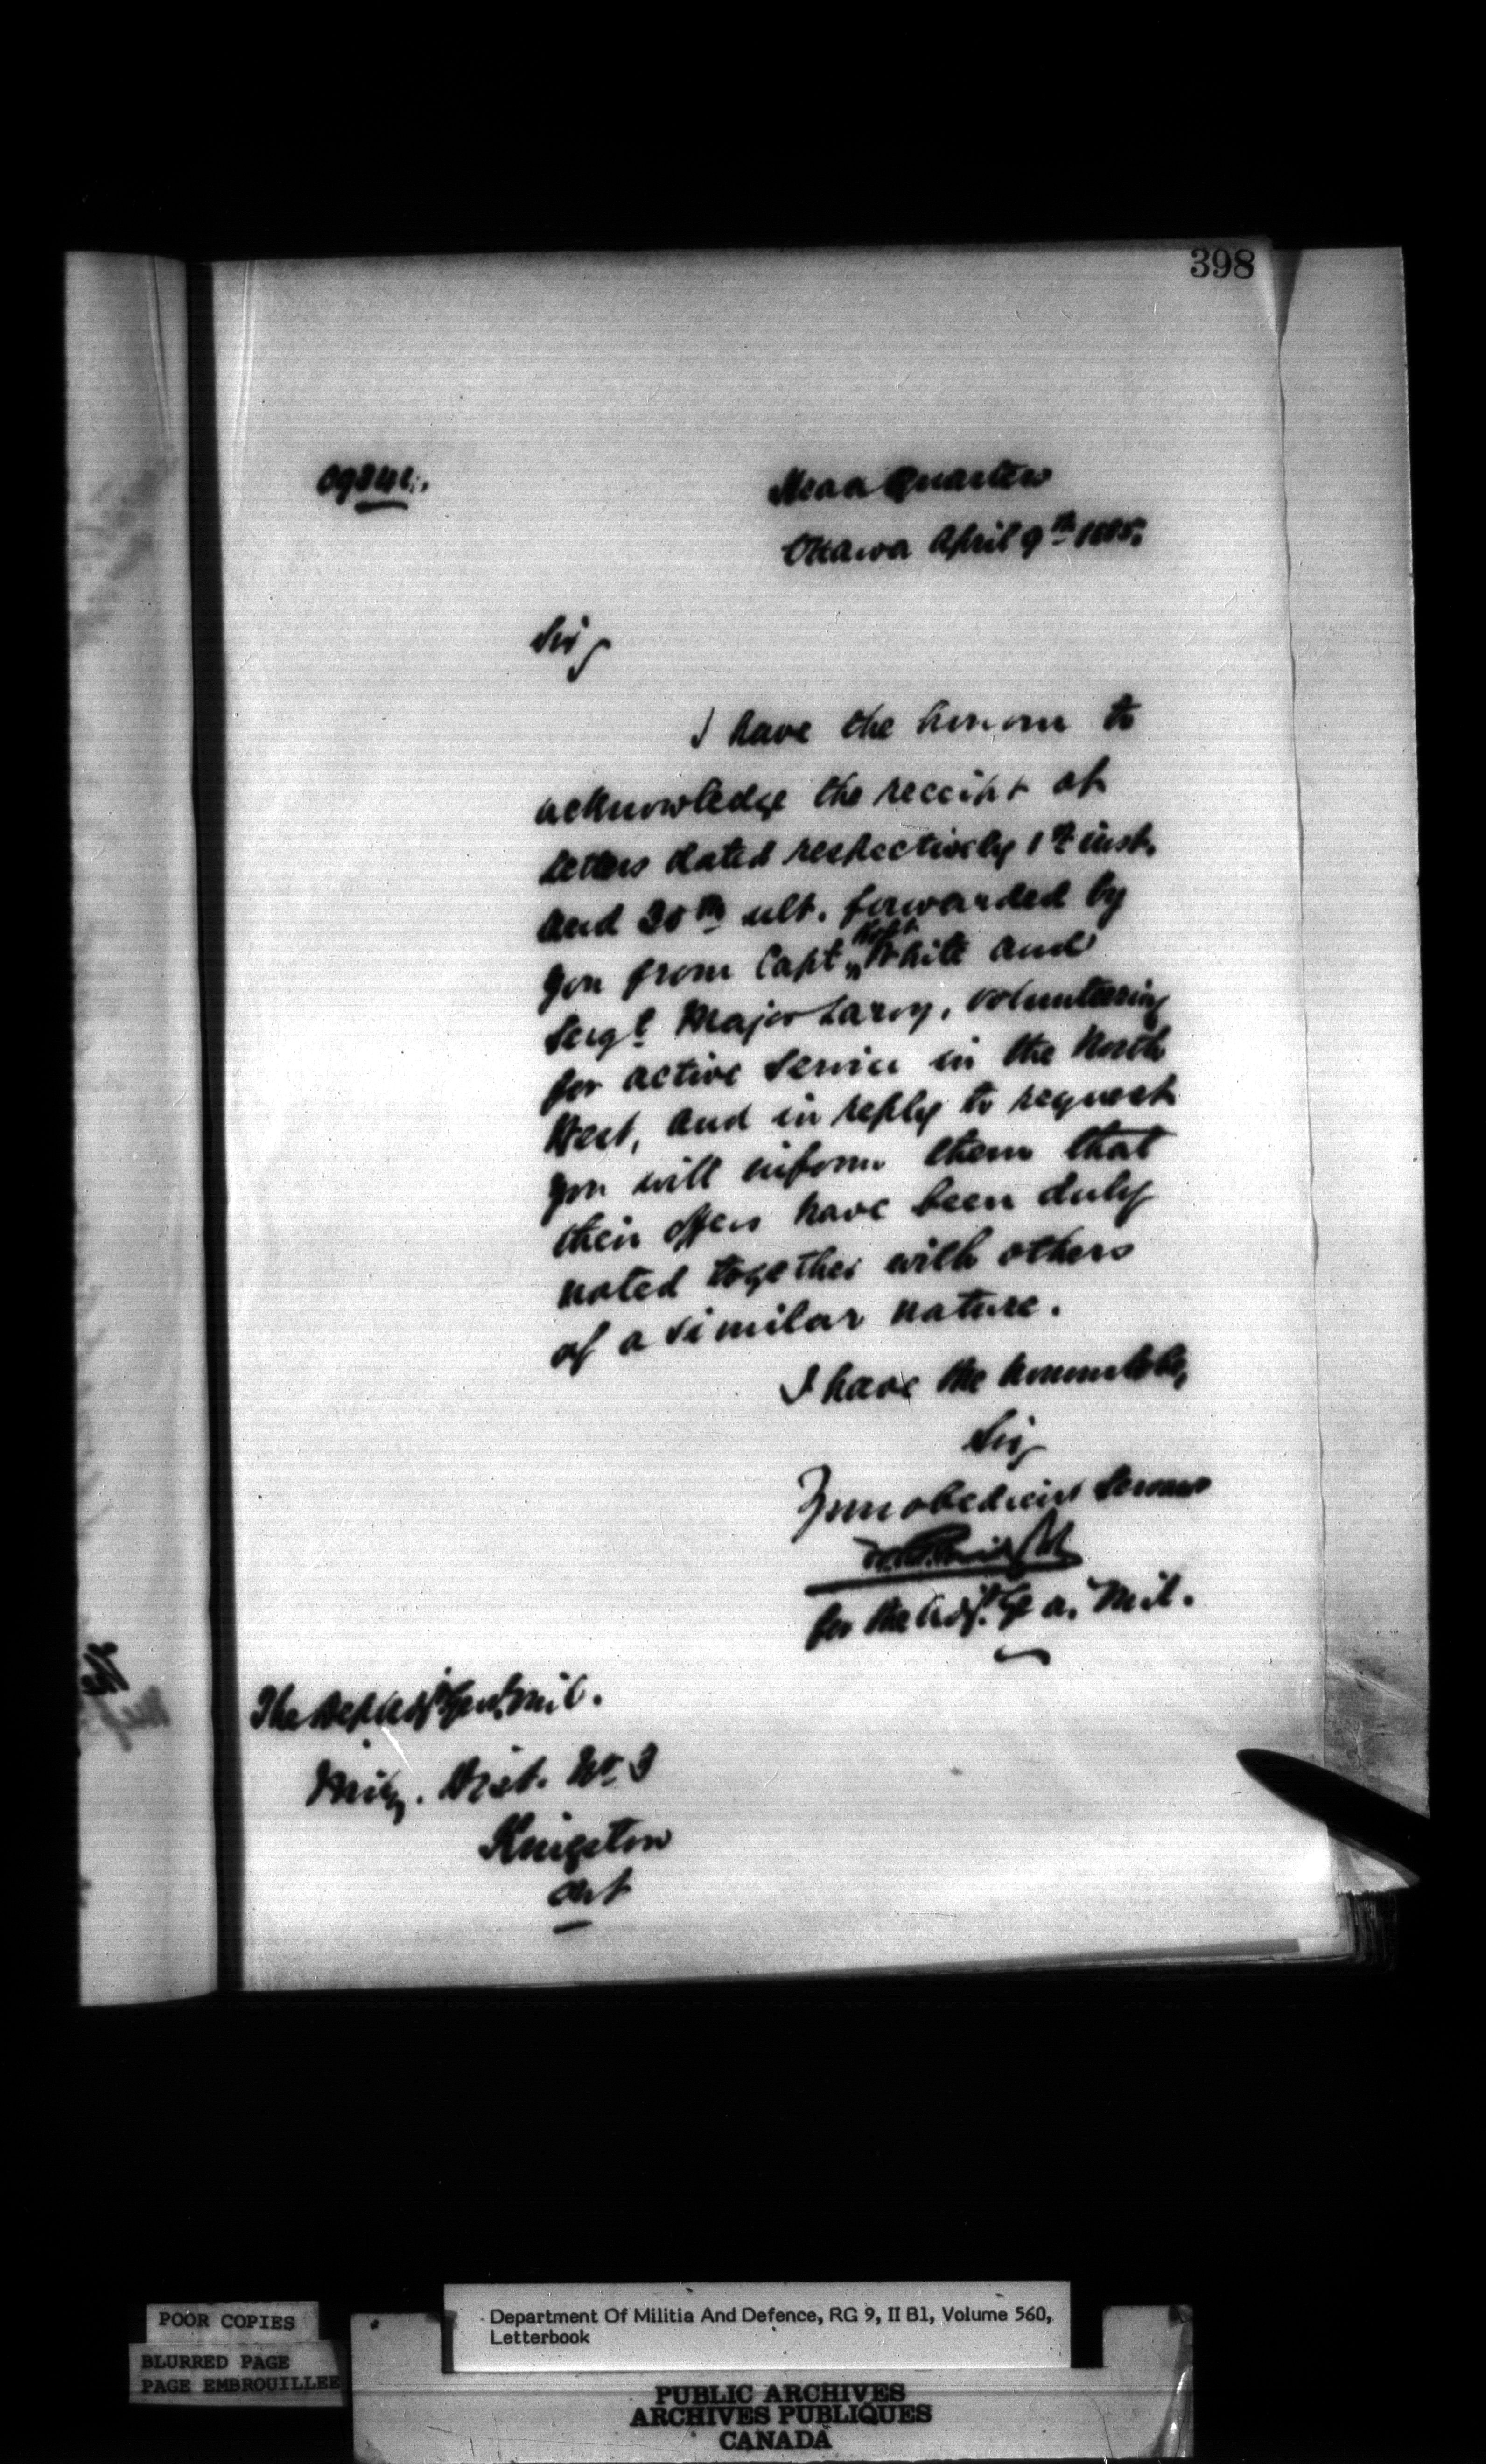 398
Head Quarters
Ottawa April 9th 1885.
Sir,
I have the honour to
acknowledge the receipt of
letters dated respectively 1st inst.
and 30th ult. forwarded by
you from Capt White and
Sergt Major, volunteering
for active Service in the North
West, and in reply to request
you will inform them that
their offers have been duly
noted together with others
of a similar nature.
I have the honour to be,
Sir,
Your obedient Servant
for the Adjt. Gl. Mil.
The Dep Adjt Genl. Mil.
Mily. Dist. No. 3
Kingston
Ont
POOR COPIES
BLURRED PAGE
PAGE EMBROUILLEE
Department Of Militia And Defence, RG 9, II B1, Volume 560,
Letterbook
PUBLIC ARCHIVES
ARCHIVES PUBLIQUES
CANADA